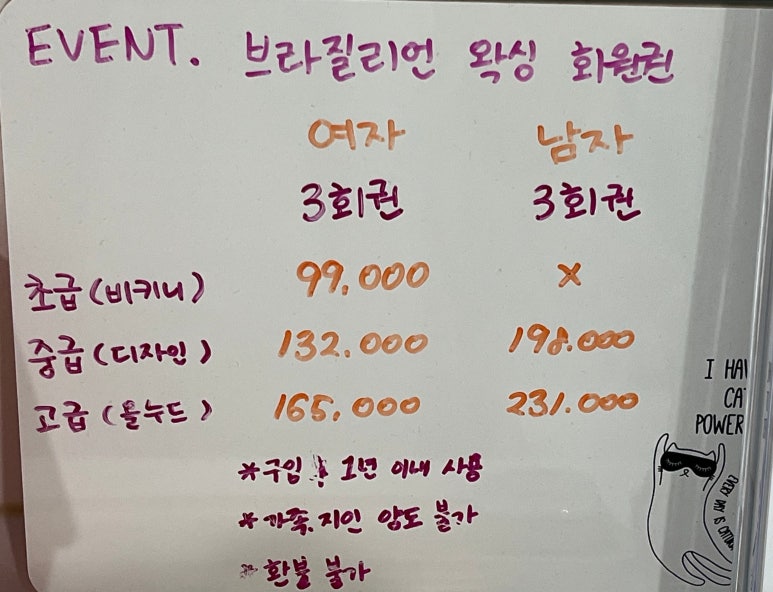 EVENT. 브라질리언 왁싱 회원권
여자 남자
3회권 3회권
초급(비키니) 99,000 X
중급(디자인) 132.000 198.000
고급(올누드) 165,000 231.000
*구입 1년 이내 사용
*가족, 지인 양도 불가
*환불 불가
I HAV
CAT
POWER
EVERY DAY IS